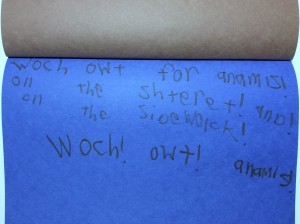 woch owt for anamis!
on the shteret! and!
on the sidewalck!
Woch! owt! anamis!